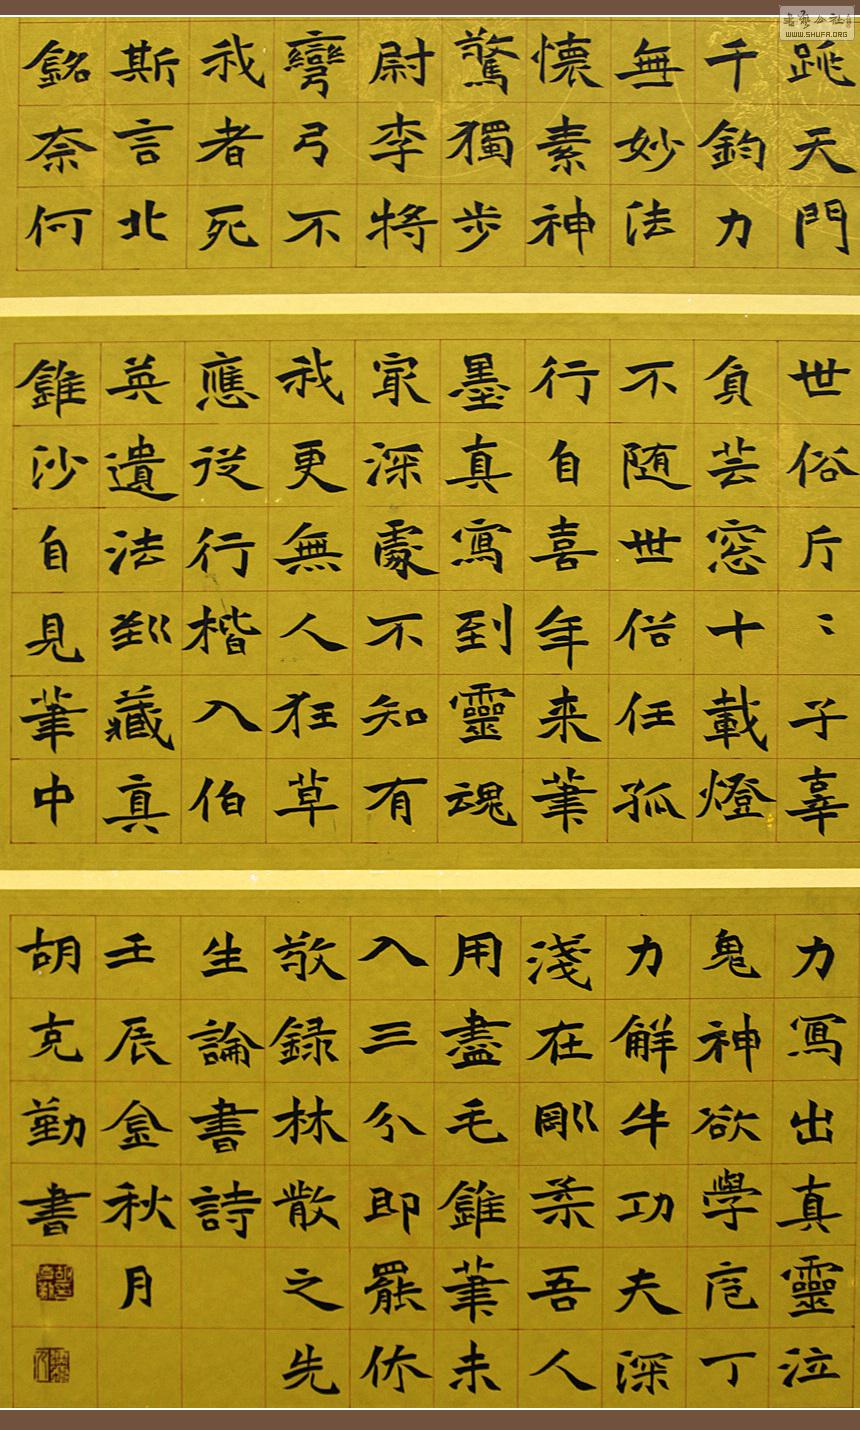 書藝公社
WWW.SHUFA.ORG
跳天門
千鈞力
無妙法
懷素神
驚獨步
尉李將
彎弓不
我者死
斯言北
銘奈何
世俗斤〻子辜
負芸窓十載燈
不随世俗任孤
行自喜年来筆
墨真寫到靈魂
㝡深處不知有
我更無人狂草
應從行楷入伯
英遺法到藏真
錐沙自見筆中
力寫出真靈泣
鬼神欲學庖丁
力解牛功夫深
淺在剛柔吾人
用盡毛錐筆未
入三分即罷休
敬録林散之先
生論書詩
壬辰金秋月
胡克勤書